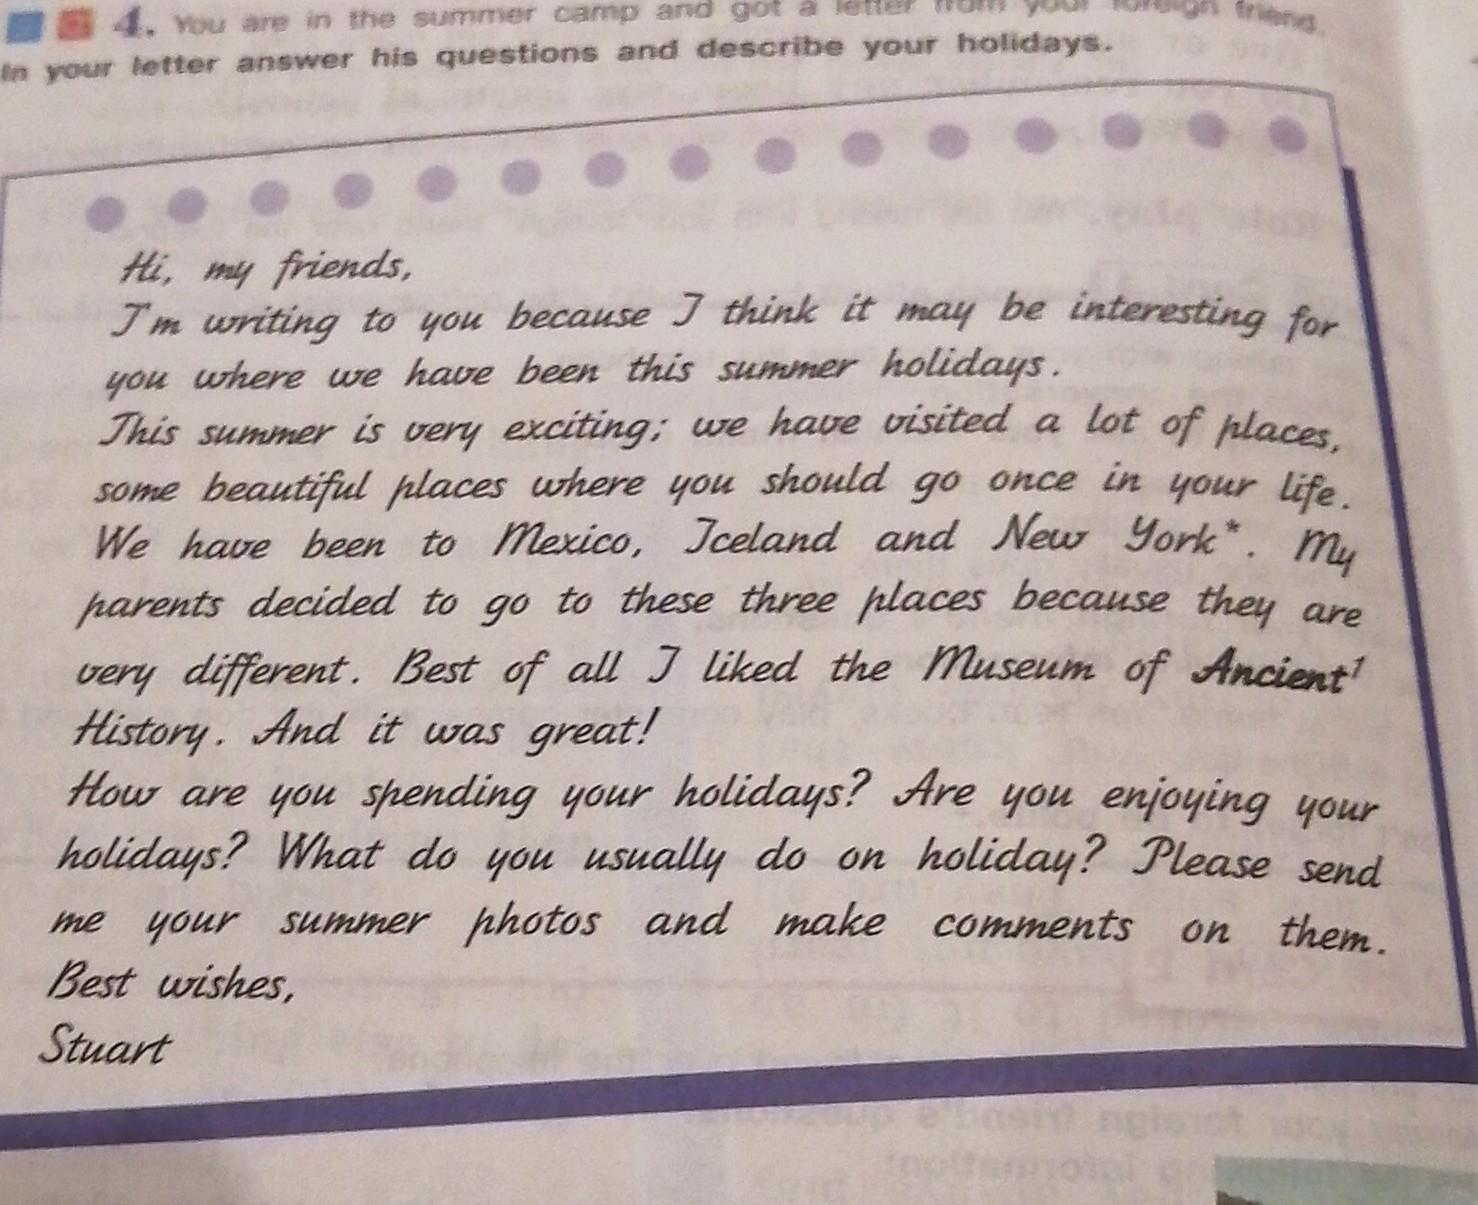 4. You are in the summer camp and got a letter from your foreign friend.
In your letter answer his questions and describe your holidays.
Hi, my friends,
I'm writing to you because I think it may be interesting for
you where we have been this summer holidays.
This summer is very exciting; we have visited a lot of places,
some beautiful places where you should go once in your life.
We have been to Mexico, Iceland and New York*. My
parents decided to go to these three places because they are
very different. Best of all I liked the Museum of Ancient¹
History. And it was great!
How are you spending your holidays? Are you enjoying your
holidays? What do you usually do on holiday? Please send
me your summer photos and make comments on them.
Best wishes,
Stuart